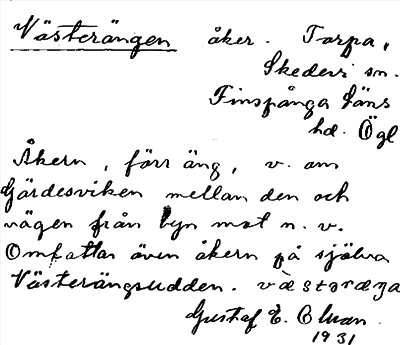 Västerängen åker. Torpa,
Skedevi sn.
Finspånga läns
hd. Ögl
Åkern, förr äng, v. om
Gärdesviken mellan den och
vägen från byn mot n. v.
Omfattar även åkern på själva
Västerängsudden. västəræŋa
Gustaf E. Olson.
1931